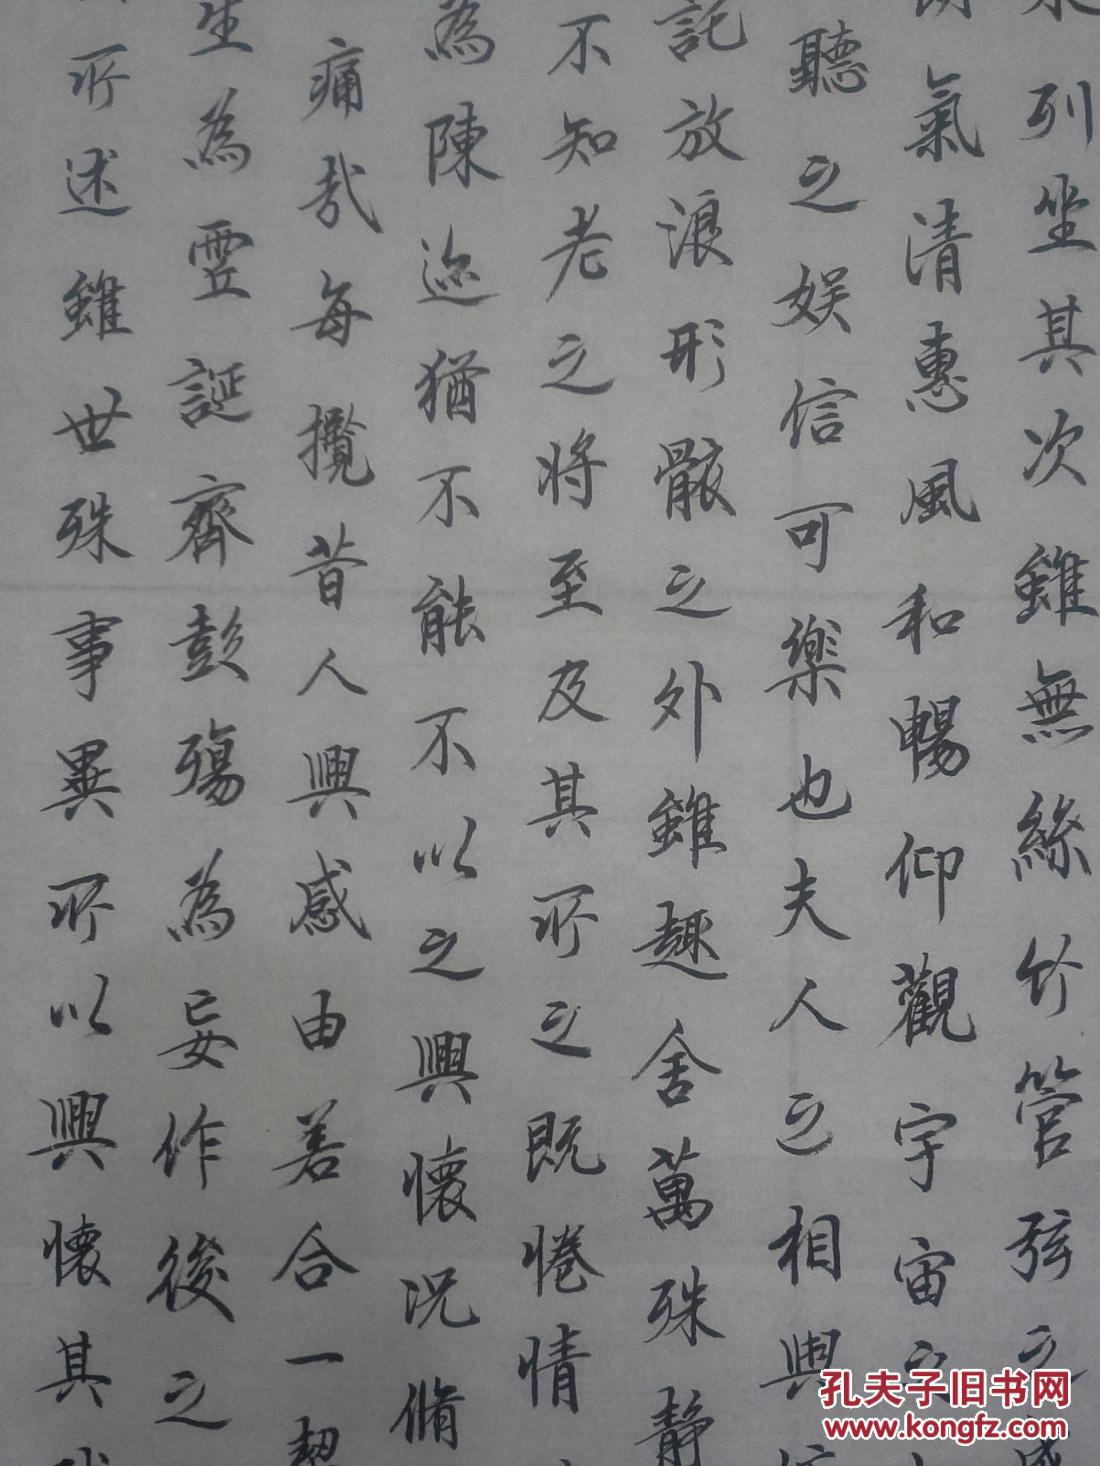 列坐其次雖無絲竹管弦之盛
朗氣清惠風和暢仰觀宇宙之
聽之娱信可樂也夫人之相與
託放浪形骸之外雖趣舍萬殊静
不知老之将至及其所之既惓情
為陳迹猶不能不以之興懷況脩
痛哉每攬昔人興感由若合一契
生為虚誕齊彭殤為妄作後之
所述雖世殊事異所以興懷其
孔夫子旧书网
www.kongfz.com